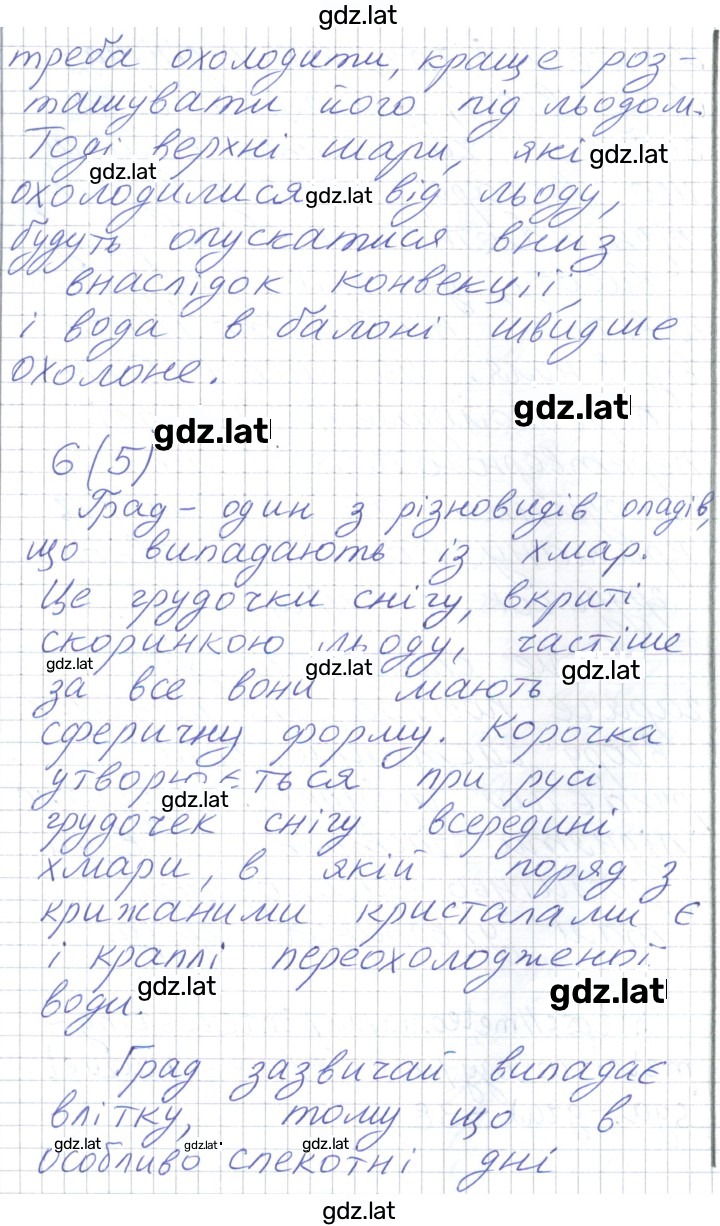 gdz.lat
треба охолодити, краще роз-
ташувати його під льодом.
Тоді верхні шари, які gdz.lat
gdz.lat
охолодилися gdz.lat від льоду,
будуть опускатися вниз
внаслідок конвекції,
і вода в балоні швидше
охолоне.
gdz.lat
gdz.lat
6(5)
Град - один з різновидів опадів,
що випадають із хмар.
Це грудочки снігу, вкриті
скоринкою льоду, частіше
gdz.lat gdz.lat gdz.lat
за все вони мають
сферичну форму. Корочка
утворюється при русі
gdz.lat
грудочек снігу всередині
хмари, в якій поряд з
крижаними кристалами є
і краплі переохолодженої
води. gdz.lat gdz.lat
Град зазвичай випадає
влітку, тому що в
gdz.lat gdz.lat gdz.lat
особливо спекотні дні
gdz.lat